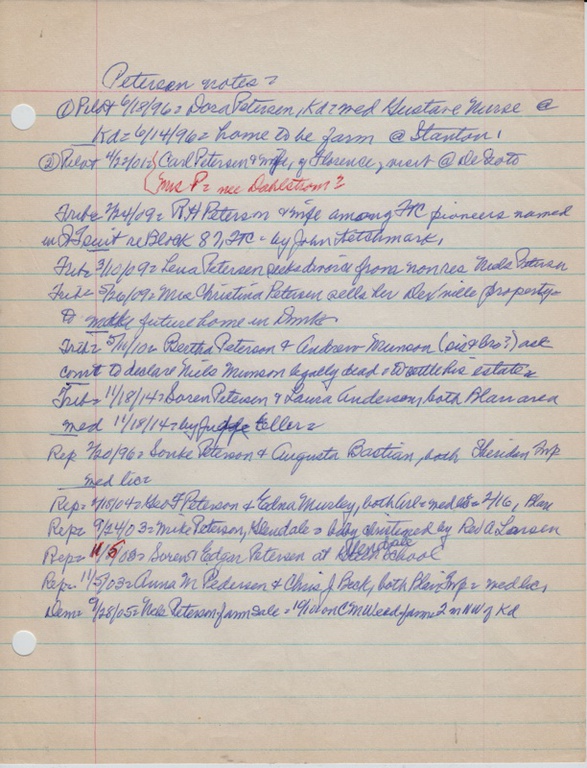 Peterson notes =
① Pilot 6/18/96 = Dora Petersen, Kd = med Gustave Nurse @
Kd = 6/14/96 = home to be farm @ Stanton,
② Pilot 4/22/01 = Carl Petersen & wife, of Florence, visit @ DeSoto
(Mrs P = nee Dahlstrom?
Trib = 2/24/09 = R H Peterson & wife among FTC pioneers named
in suit re Block 87, FTC = by John
Trib = 3/10/09 = Lena Petersen seeks divorce from nonres Niels Petersen
Trib = 5/26/09 = Mrs Christina Petersen sells her property =
to make future home in
Trib = 5/11/10 = Bertha Peterson & Andrew Munson (sis & bro?) ask
court to declare Nils Munson legally dead = to settle his estate =
Trib = 11/18/14 = Soren Peterson & Laura Anderson, both Blair area
med 11/18/14 = by Judge Eller =
Rep 2/20/96 = Peterson & Augusta Bastian, both Sheridan Twp
med lic =
Rep = 2/18/04 = Geo F Peterson & Edna Mursley, both Arl = med 2/16, Blair
Rep = 9/24/03 = Mike Peterson, Glendale = baby christened by Rev A Larsen
Rep = 11/5/03 = Soren & Edgar Petersen at Glendale School
Rep = 11/5/03 = Anna M Pedersen & Chris J Beck, both Blair Twp = med lic,
Dem = 9/28/05 = Niels Peterson farm sale = 10/10 on C M Weed farm = 2 m NW of Kd